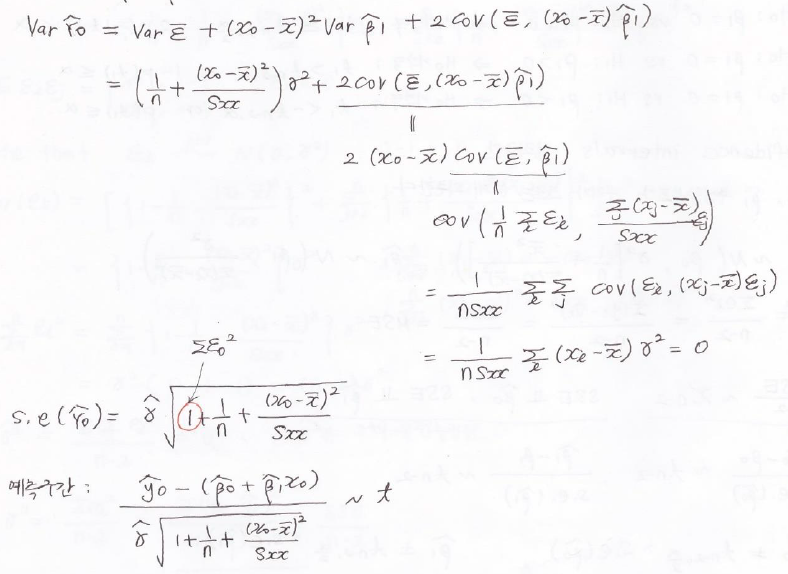 Var Ŷ₀ = Var ε̄ + (x₀-x̄)² Var β̂₁ + 2 Cov(ε̄, (x₀-x̄)β̂₁)
= (1/n + (x₀-x̄)²/Sxx)σ² + 2 cov(ε̄, (x₀-x̄)β̂₁)
||
2 (x₀-x̄) Cov(ε̄, β̂₁)
||
cov(1/n Σᵢ εᵢ, Σⱼ(xⱼ-x̄)εⱼ/Sxx)
= 1/(nSxx) Σᵢ Σⱼ cov(εᵢ, (xⱼ-x̄)εⱼ)
= 1/(nSxx) Σᵢ (xᵢ-x̄)σ² = 0
Σε₀²
s.e(Ŷ₀) = σ̂ √(1 + 1/n + (x₀-x̄)²/Sxx)
예측구간 : (ŷ₀ - (β̂₀ + β̂₁x₀)) / (σ̂ √(1 + 1/n + (x₀-x̄)²/Sxx)) ~ t